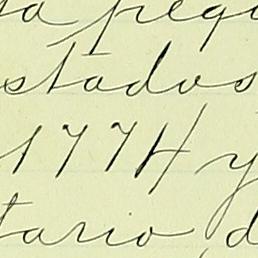 a pequ
stados
1774 y
tario, d